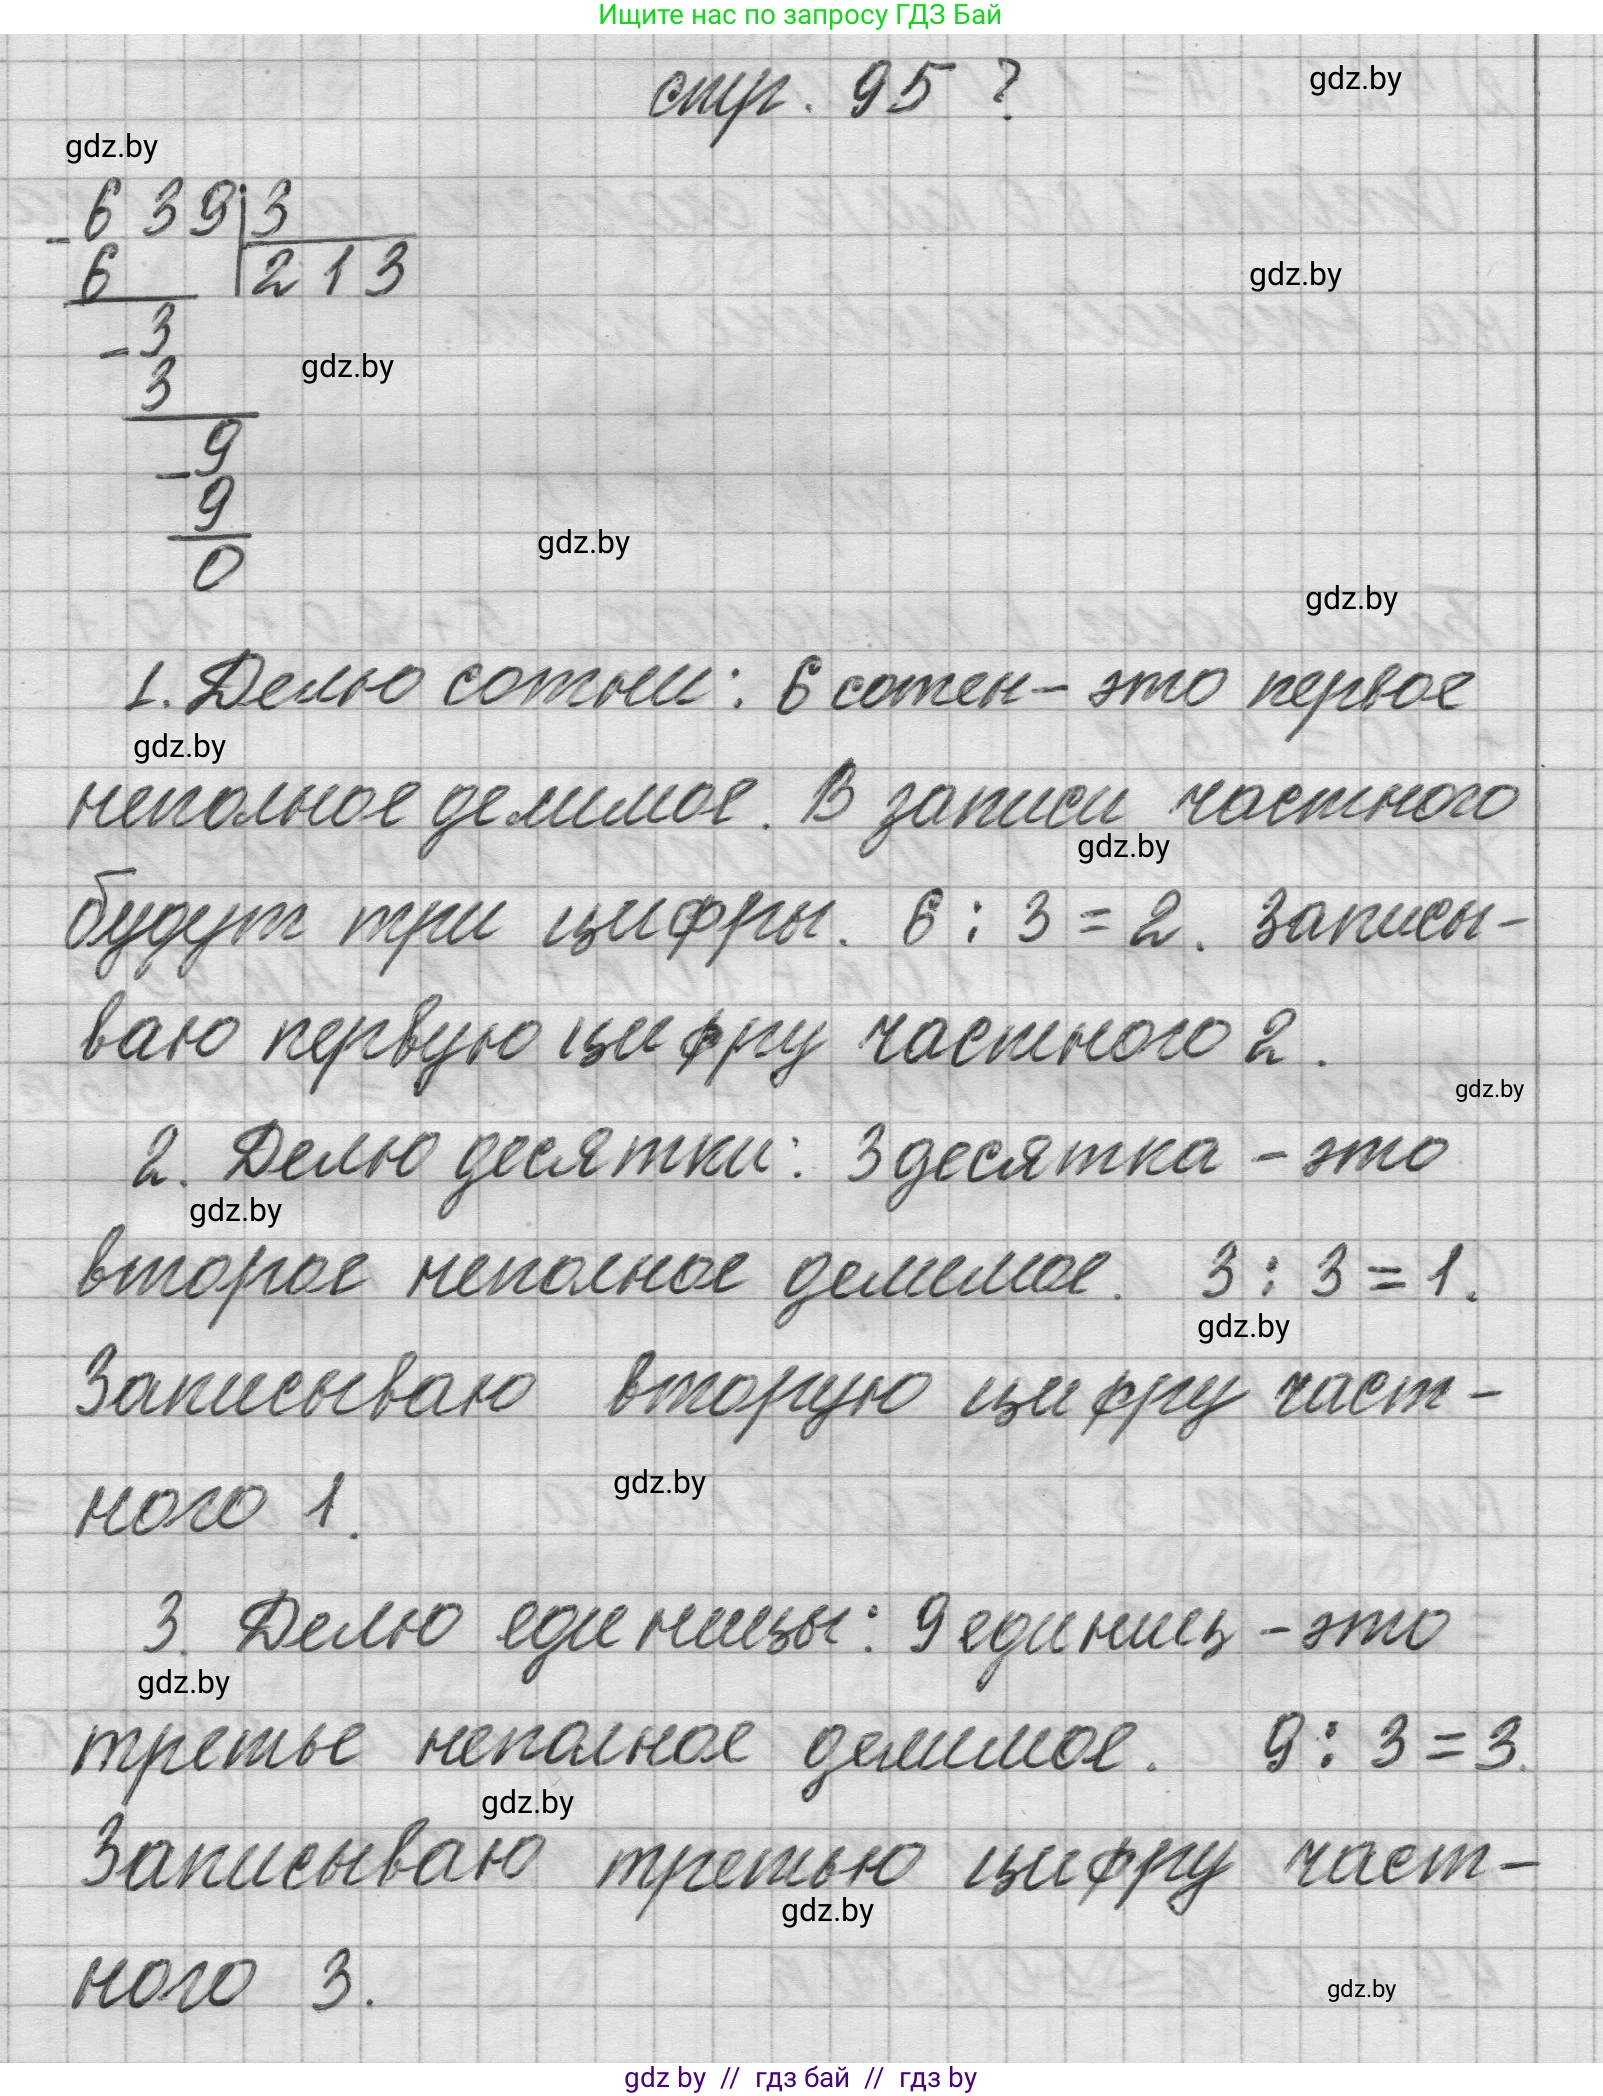 Ищите нас по запросу ГДЗ Бай
стр. 95 ?
gdz.by
gdz.by
639 3
6 213
gdz.by
-3
3
gdz.by
-9
9
0
gdz.by
gdz.by
1. Делю сотни: 6 сотен - это первое
gdz.by
неполное делимое. В записи частного
gdz.by
будут три цифры. 6 : 3 = 2. Записы-
ваю первую цифру частного 2.
gdz.by
2. Делю десятки: 3 десятка - это
gdz.by
второе неполное делимое. 3 : 3 = 1.
gdz.by
Записываю вторую цифру част-
gdz.by
ного 1.
3. Делю единицы: 9 единиц - это
gdz.by
третье неполное делимое. 9 : 3 = 3.
gdz.by
Записываю третью цифру част-
gdz.by
ного 3.
gdz.by
gdz by // гдз бай // гдз by